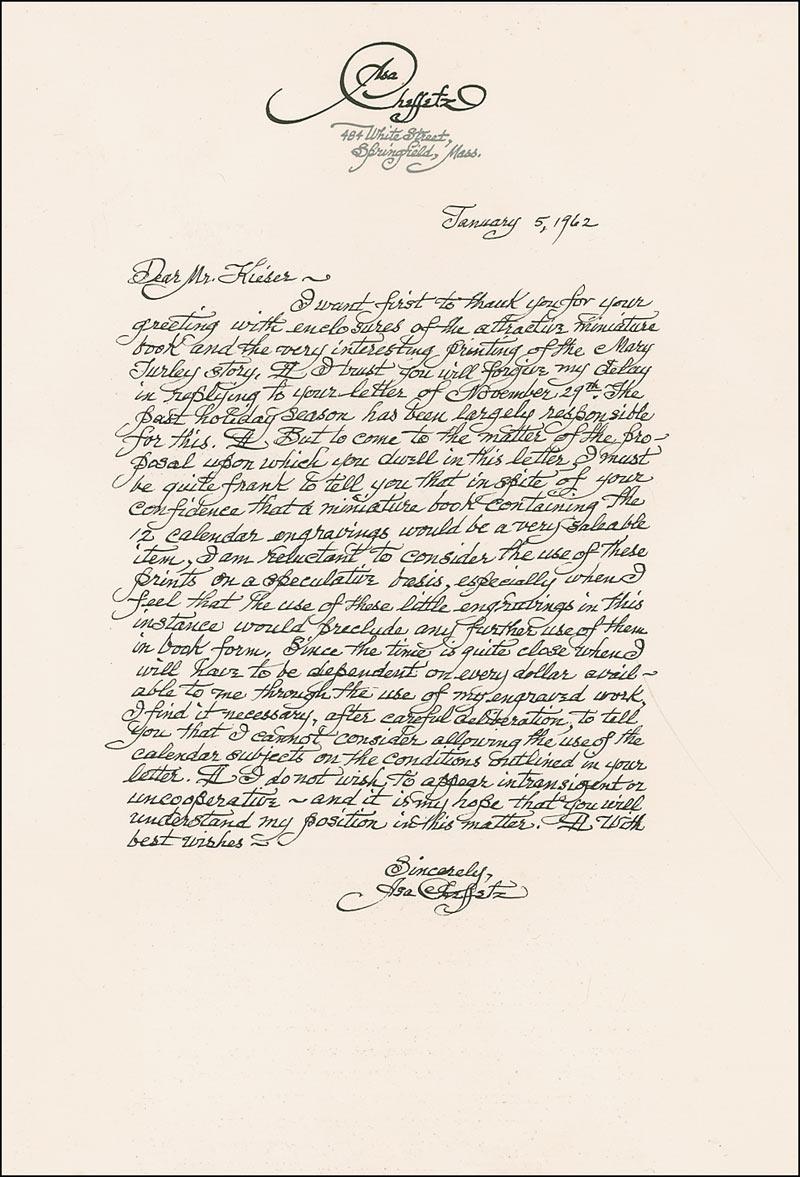 Asa
Cheffetz
484 White Street,
Springfield, Mass.
January 5, 1962
Dear Mr. Kieser ~
I want first to thank you for your
greeting with enclosures of the attractive miniature
book and the very interesting printing of the Mary
Turley story. ¶ I trust you will forgive my delay
in replying to your letter of November 29th. The
past holiday season has been largely responsible
for this. ¶ But to come to the matter of the pro-
posal upon which you dwell in this letter, I must
be quite frank to tell you that in spite of your
confidence that a miniature book containing the
12 calendar engravings would be a very saleable
item, I am reluctant to consider the use of these
prints on a speculative basis, especially when I
feel that the use of these little engravings in this
instance would preclude any further use of them
in book form. Since the time is quite close when I
will have to be dependent on every dollar avail-
able to me through the use of my engraved work,
I find it necessary, after careful deliberation, to tell
you that I cannot consider allowing the use of the
calendar subjects on the conditions outlined in your
letter. ¶ I do not wish to appear intransigent or
uncooperative ~ and it is my hope that you will
understand my position in this matter. ¶ With
best wishes ~
Sincerely,
Asa Cheffetz